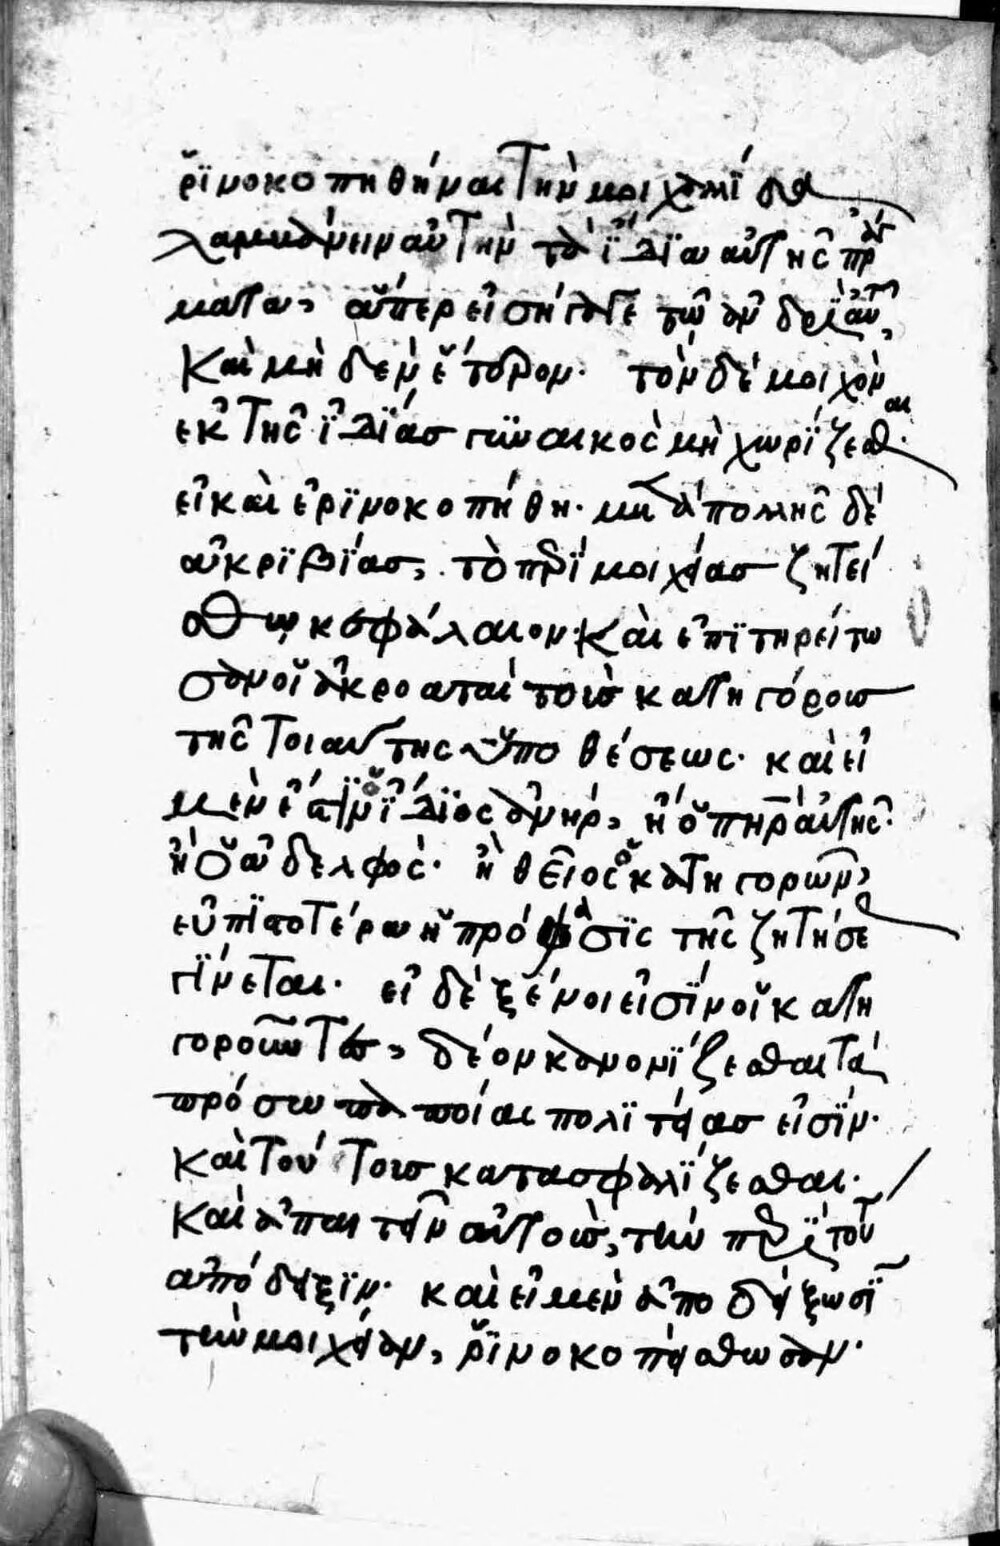 ῥϊνοκοπηθήναι τὴν μοιχαλϊδα
λαμβάνειν αὐτὴν τὰ ἴδϊα αὐτῆς πράγ
ματα, ἅπερ εἰσήγαγε τῶ ἀνδρὶ αὐτ,
καὶ μηδὲν ἕτερον. τὸν δὲ μοιχὸν
ἐκ τῆς ἰδϊάσ γϋναικὸς μὴ χωρίζεσθαι.
εἰ καὶ ἐρϊνοκοπήθη. μετὰ πολλῆς δὲ
ἀκρϊβϊάσ, τὸ περῒ μοιχείασ ζητεί
σθω κεφάλαιον. καὶ ἐπϊτηρείτω
σαν οἱ ἀκροαταὶ τοὺσ κατηγόρουσ
τῆς τοιαύτης ὑποθέσεως. καὶ εἰ
μὲν ἐστῒν ὁ ἴδϊος ἀνήρ, ἢ ὁ πηρ αὐτῆς.
ἢ ὁ ἀδελφός. ἢ θεῖος ὁ κατηγορῶν,
εὐπϊστοτέρα ἡ πρόφασϊς τῆς ζητήσε
γίνεται. εἰ δὲ ξένοι εἰσῒν οἱ κατη
γοροῦντες, δέον κανονίζεσθαι τὰ
πρόσωπα ποίασ πολϊτείασ εἰσϊν.
καὶ τούτουσ κατασφαλίζεσθαι.
καὶ ἀπαιτεῖν αὐτοὺσ, τὴν περῒ τούτ
ἀπόδειξϊν. καὶ εἰ μὲν ἀποδείξωσϊ
τὴν μοιχείαν, ῥϊνοκοπείσθωσαν.